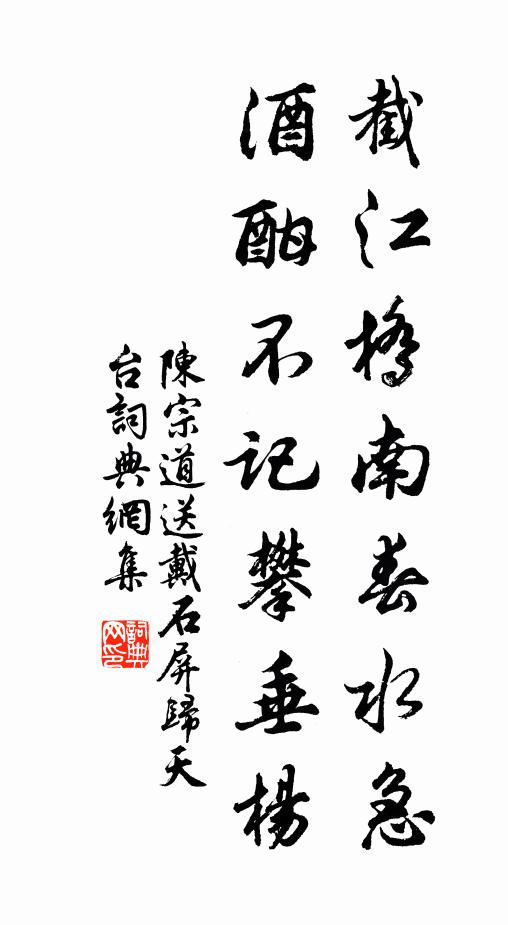 截江橋南春水急
酒酣不記攀垂楊
陳宗道送戴石屏歸天
台詞典網集
詞典
网印